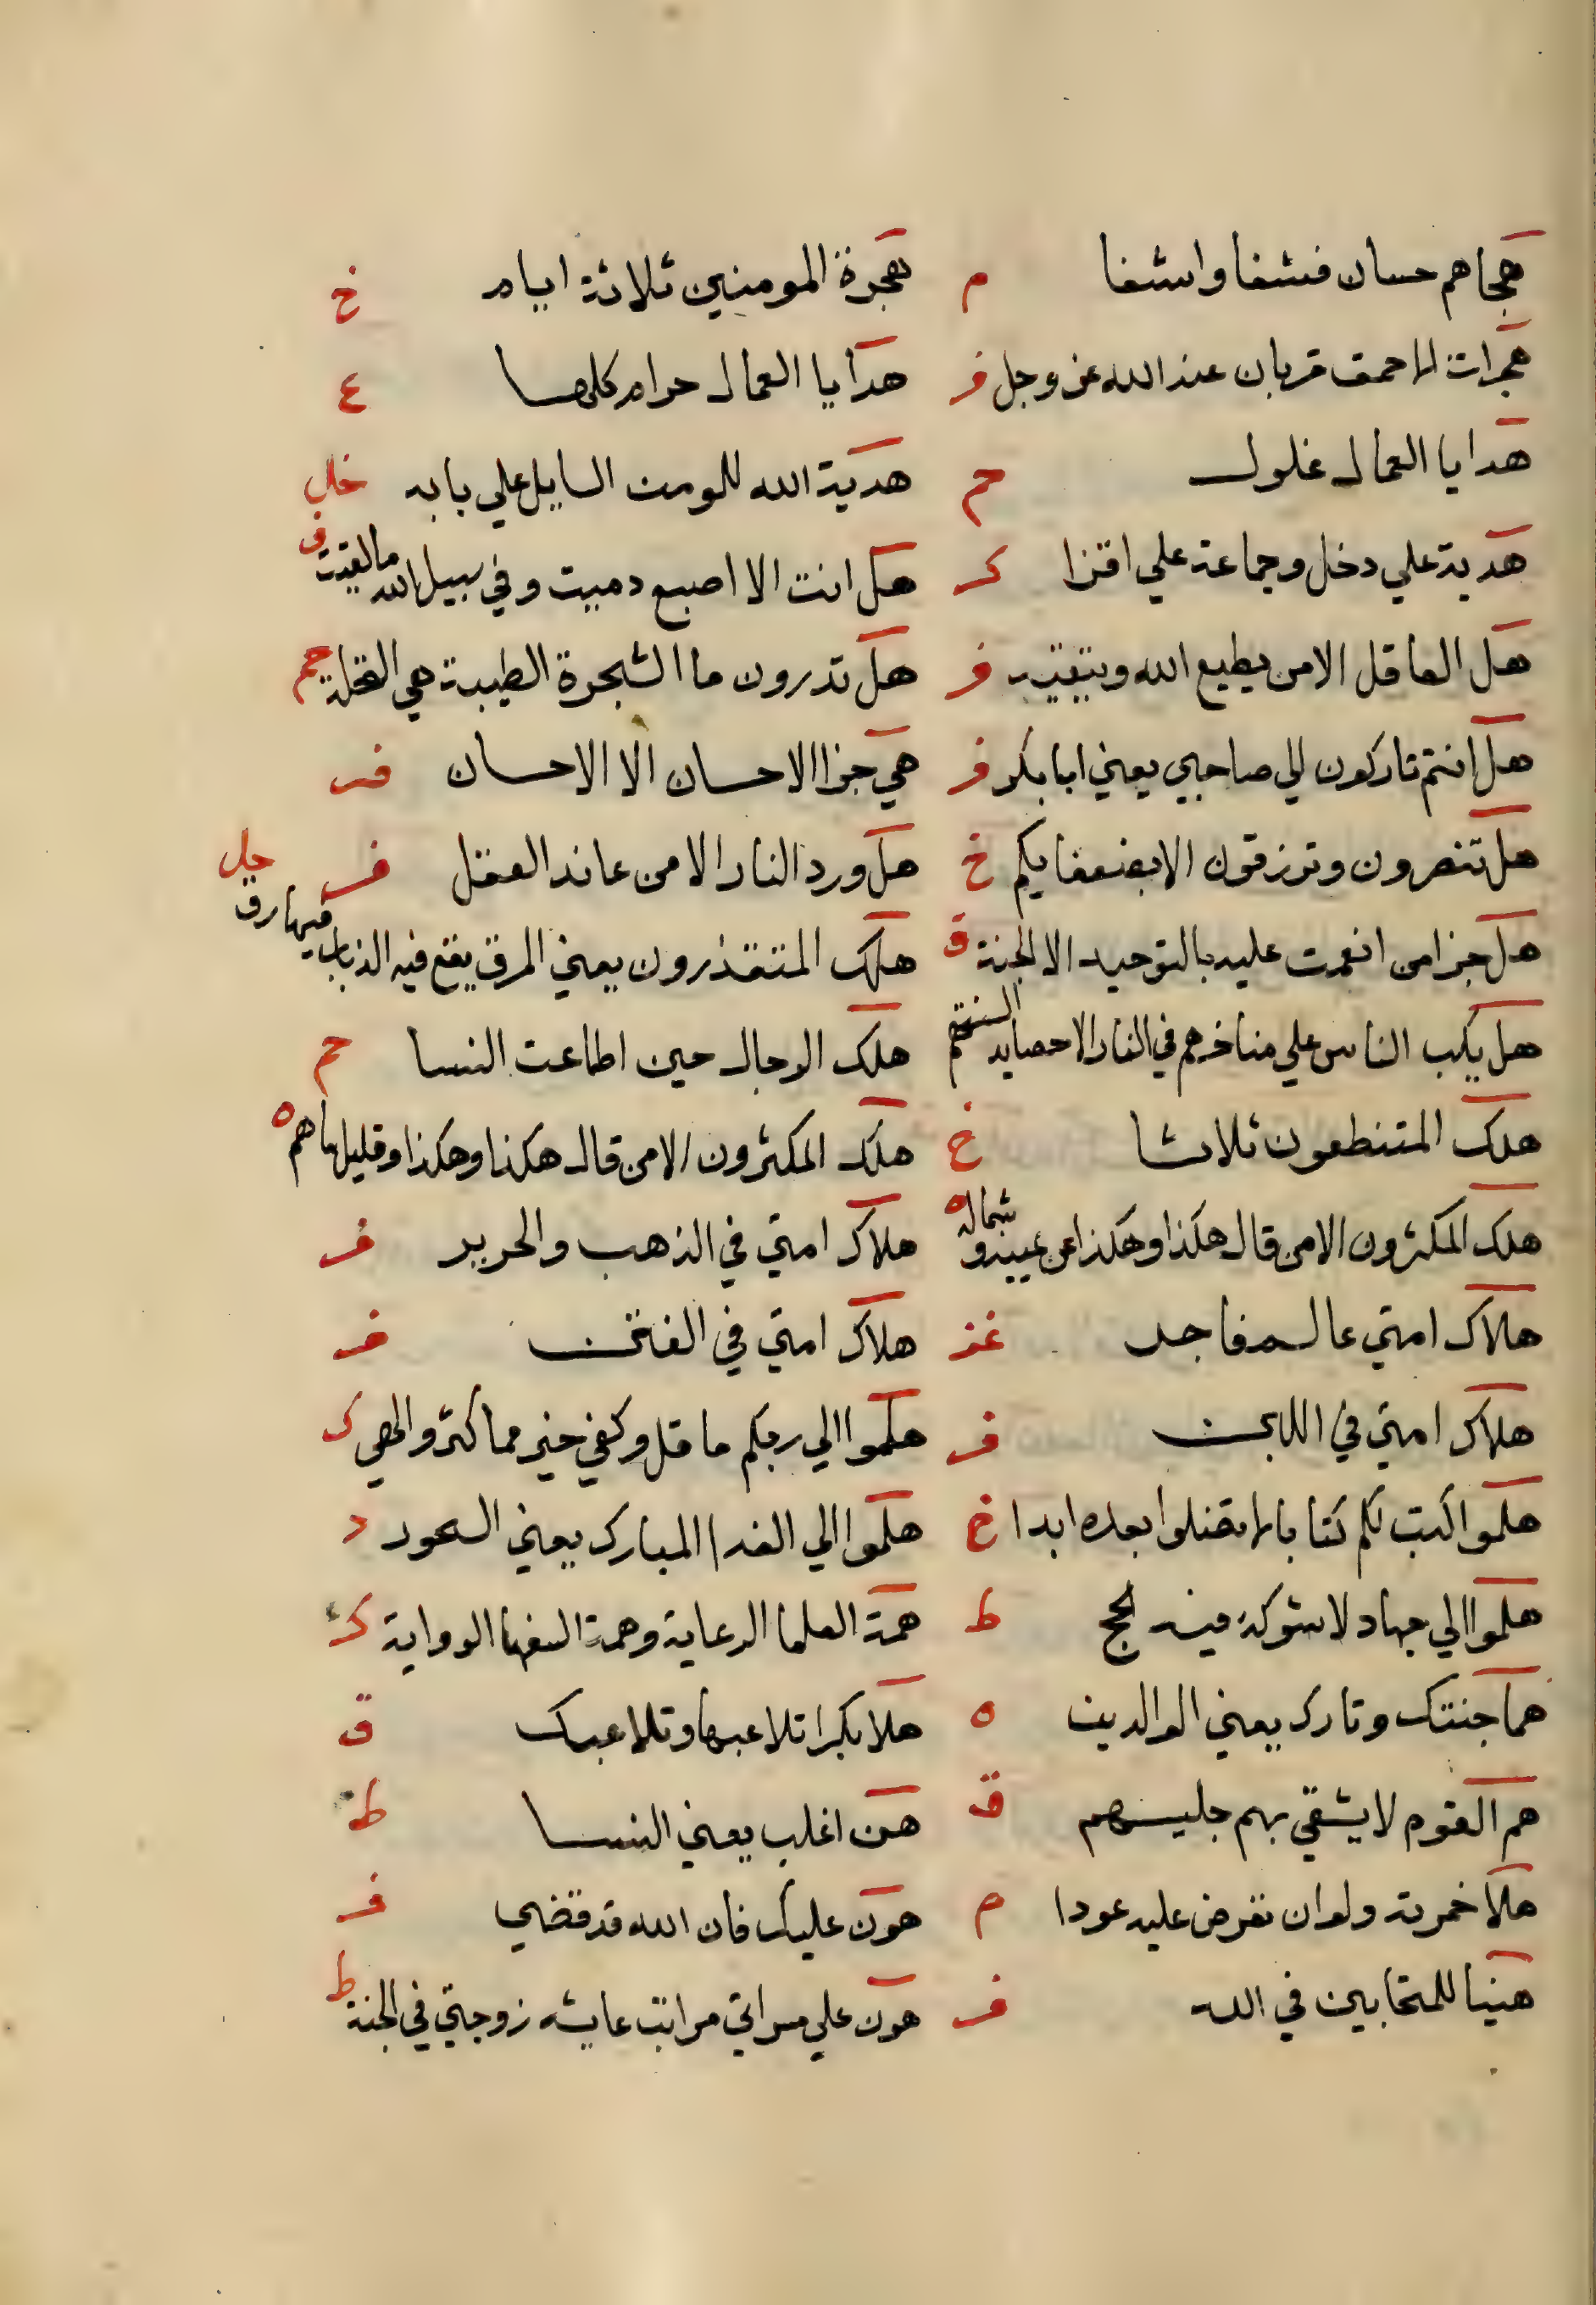 هجاهم حسان فشفا واشفا م هجرة المومنين ثلاثة ايام خ
هجرات الاحمق قربان عند الله عز وجل فر هدايا العمال حرام كلها ع
هدايا العمال غلول حم هدية الله للمومن السايل علي بابه خل
هدية علي دخل وجماعة علي اقذا ك هل انت الا اصبع دميت وفي سبيل الله مالقيت ف
هل العاقل الا من يطيع الله ويتقيه فر هل تدرون ما الشجرة الطيبة هي النخلة حم
هل انتم تاركون لي صاحبي يعني ابا بكر فر هي جزا الاحسان الا الاحسان فر
هل تنصرون وترزقون الا بضعفايكم خ هل ورد النار الا من عاند العقل فر
هل جزا من انعمت عليه بالتوحيد الا الجنة ق هلك المتقذرون يعني المرق يقع فيه الذباب فيهارق حل
هل يكب الناس علي مناخرهم في النار الا حصايد السنتهم هلك الرجال حين اطاعت النسا حم
هلك المتنطعون ثلاثا خ هلك المكثرون الا من قال هكذا وهكذا وقليل ما هم ه
هلك المكثرون الا من قال هكذا وهكذا عن يمينه و شماله ه هلاك امتي في الذهب والحرير فر
هلاك امتي عالم فاجر غز هلاك امتي في الفتن فر
هلاك امتي في اللبن فر هلموا الي ربكم ما قل وكفي خير مما كثر والهي ك
هلموا اكتب لكم كتابا لا تضلوا بعده ابدا خ هلموا الي الغدا المبارك يعني السحور د
هلموا الي جهاد لا شوكة فيه الحج ط همة العلما الرعاية وهمة السفها الرواية كر
هما جنتك ونارك يعني الوالدين ه هلا بكرا تلاعبها وتلاعبك ق
هم القوم لا يشقي بهم جليسهم ق هن اغلب يعني النسا ط
هلا خمرته ولو ان تعرض عليه عودا م هون عليك فان الله قد قضي فر
هنيا للمتحابين في الله فر هون علي موتي اني رايت عايشه زوجتي في الجنة ط